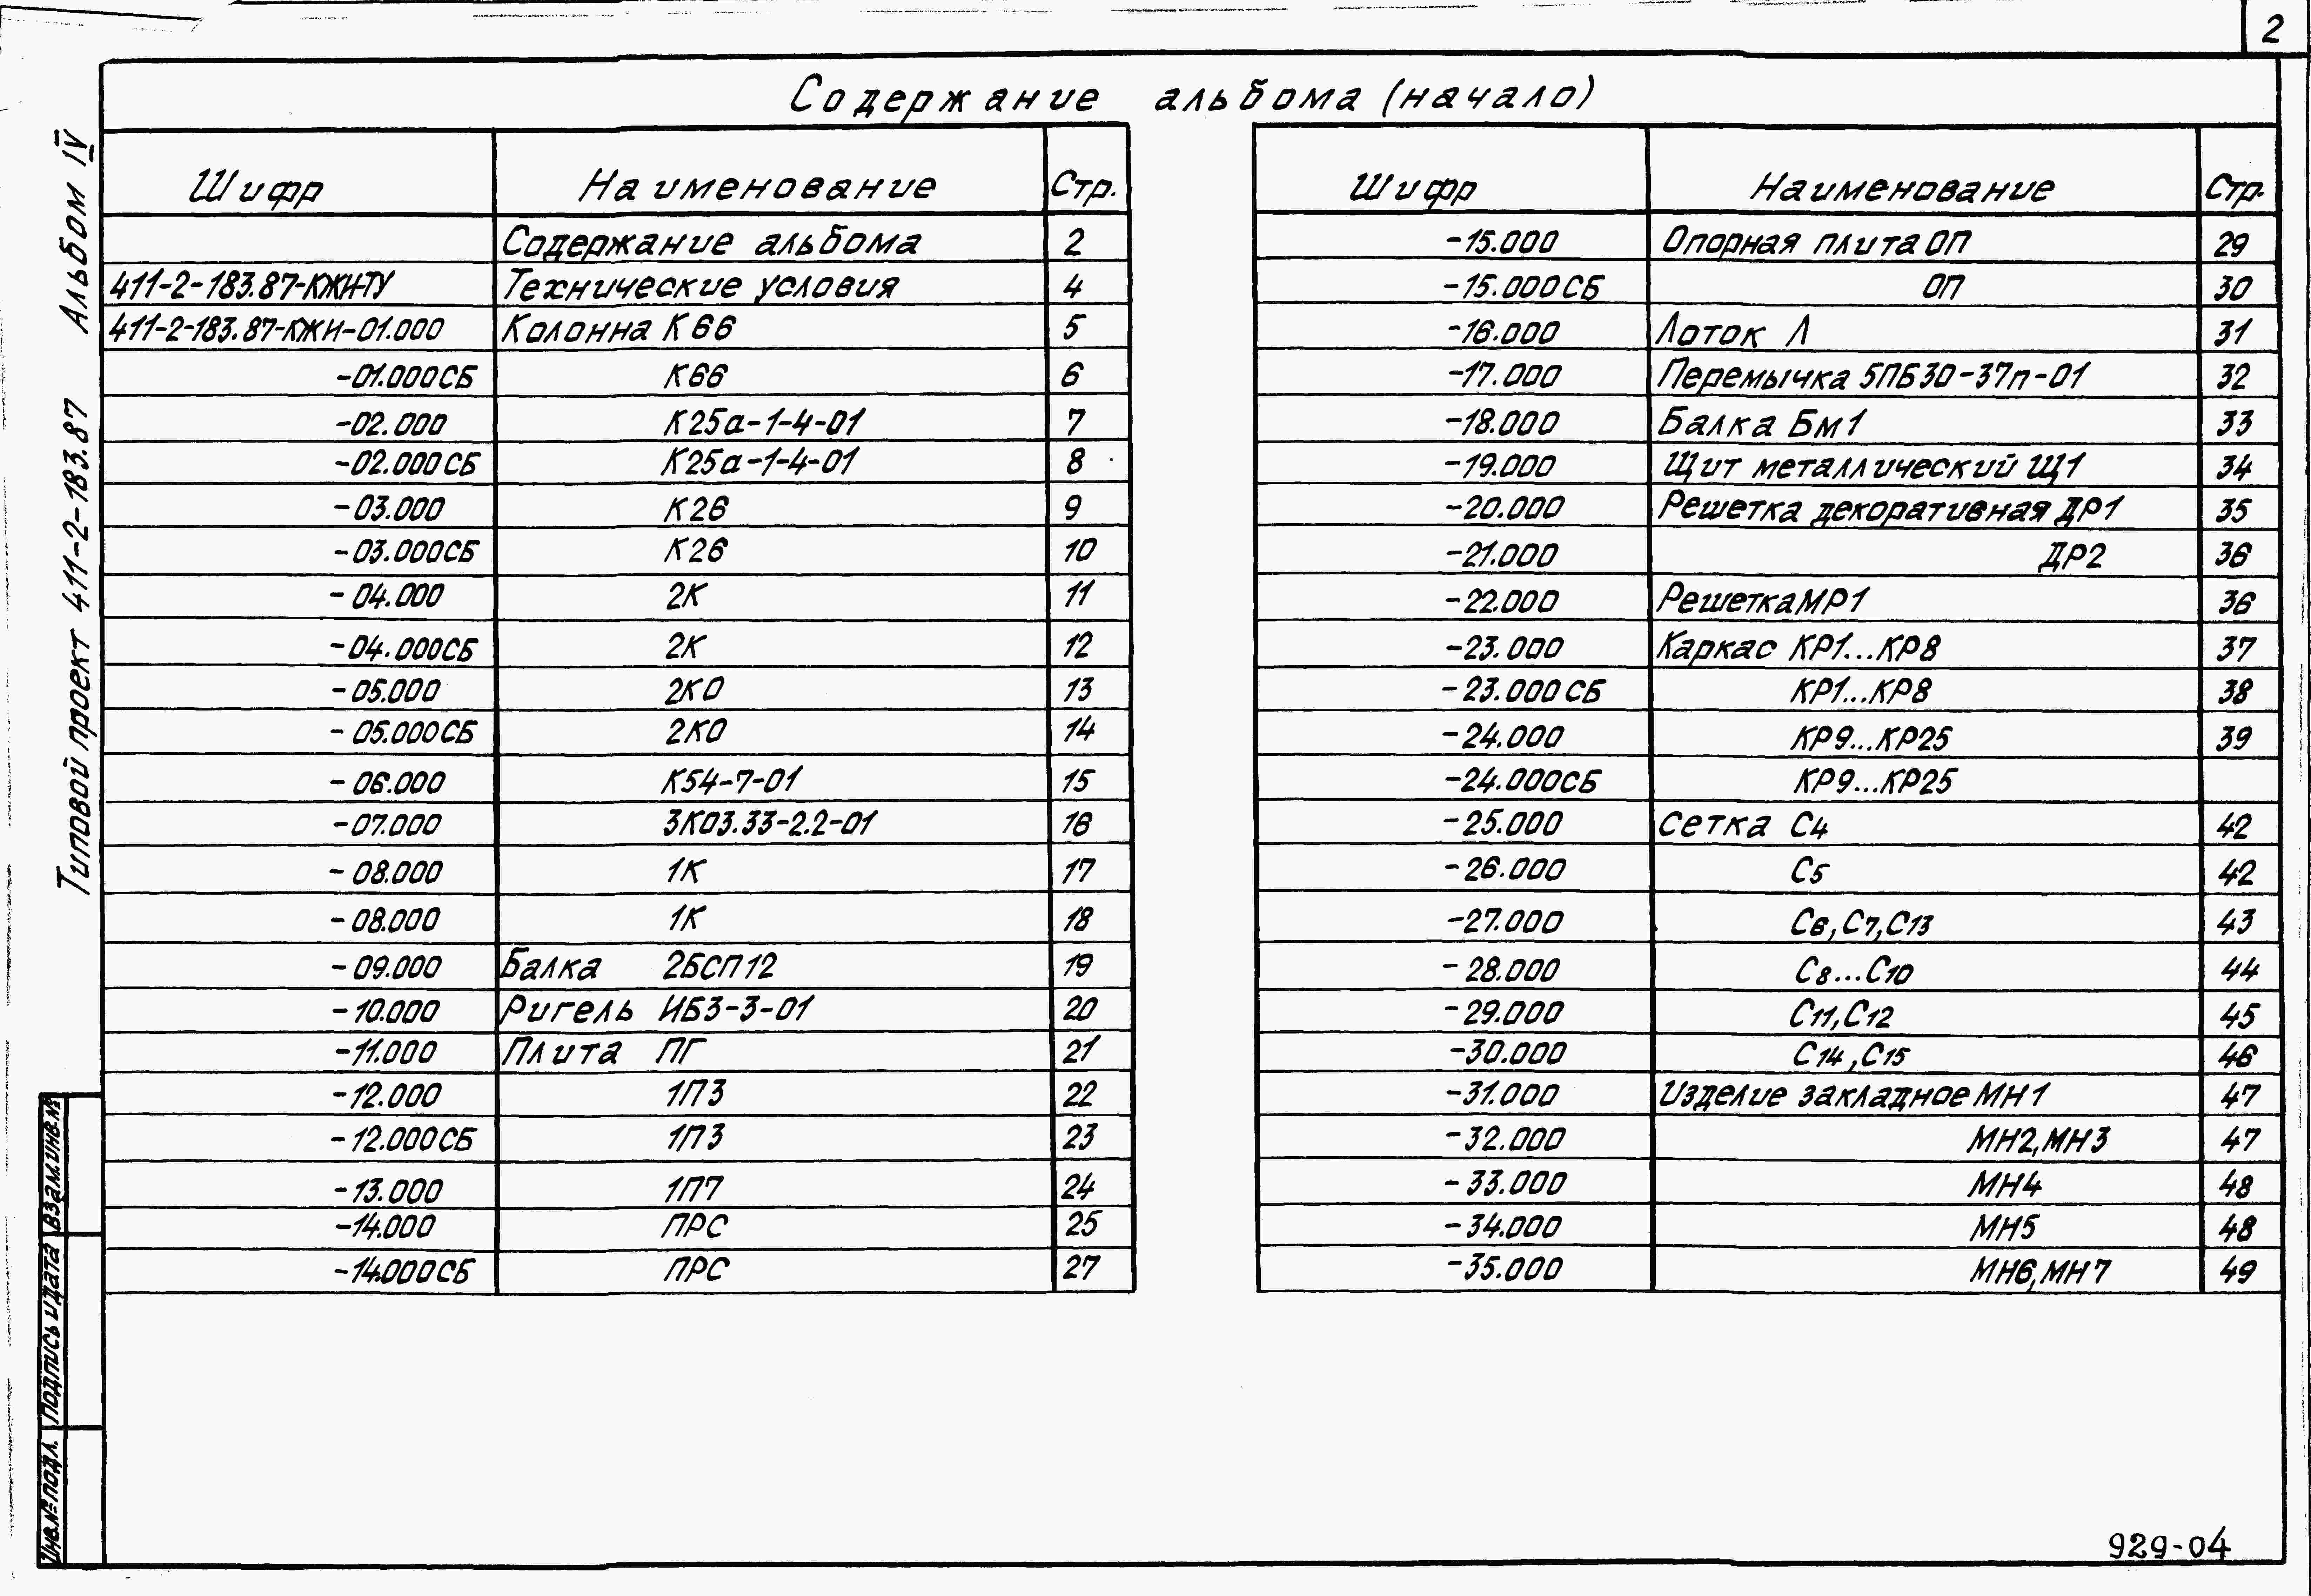 2
Содержание альбома (начало)
Типовой проект 411-2-183.87 Альбом IV
Шифр Наименование Стр.
Содержание альбома 2
411-2-183.87-КЖИ-ТУ Технические условия 4
411-2-183.87-КЖИ-01.000 Колонна К66 5
-01.000СБ К66 6
-02.000 К25а-1-4-01 7
-02.000СБ К25а-1-4-01 8
-03.000 К26 9
-03.000СБ К26 10
-04.000 2К 11
-04.000СБ 2К 12
-05.000 2КО 13
-05.000СБ 2КО 14
-06.000 К54-7-01 15
-07.000 3К03.33-2.2-01 16
-08.000 1К 17
-08.000 1К 18
-09.000 Балка 2БСП12 19
-10.000 Ригель ИБ3-3-01 20
-11.000 Плита ПГ 21
-12.000 1П3 22
-12.000СБ 1П3 23
-13.000 1П7 24
-14.000 ПРС 25
-14.000СБ ПРС 27
Шифр Наименование Стр.
-15.000 Опорная плита ОП 29
-15.000СБ ОП 30
-16.000 Лоток Л 31
-17.000 Перемычка 5ПБ30-37п-01 32
-18.000 Балка Бм1 33
-19.000 Щит металлический Щ1 34
-20.000 Решетка декоративная ДР1 35
-21.000 ДР2 36
-22.000 Решетка МР1 36
-23.000 Каркас КР1...КР8 37
-23.000СБ КР1...КР8 38
-24.000 КР9...КР25 39
-24.000СБ КР9...КР25
-25.000 сетка С4 42
-26.000 С5 42
-27.000 С6, С7, С13 43
-28.000 С8...С10 44
-29.000 С11, С12 45
-30.000 С14, С15 46
-31.000 Изделие закладное МН1 47
-32.000 МН2, МН3 47
-33.000 МН4 48
-34.000 МН5 48
-35.000 МН6, МН7 49
Инв.№подл. Подпись и дата Взам.инв.№
929-04